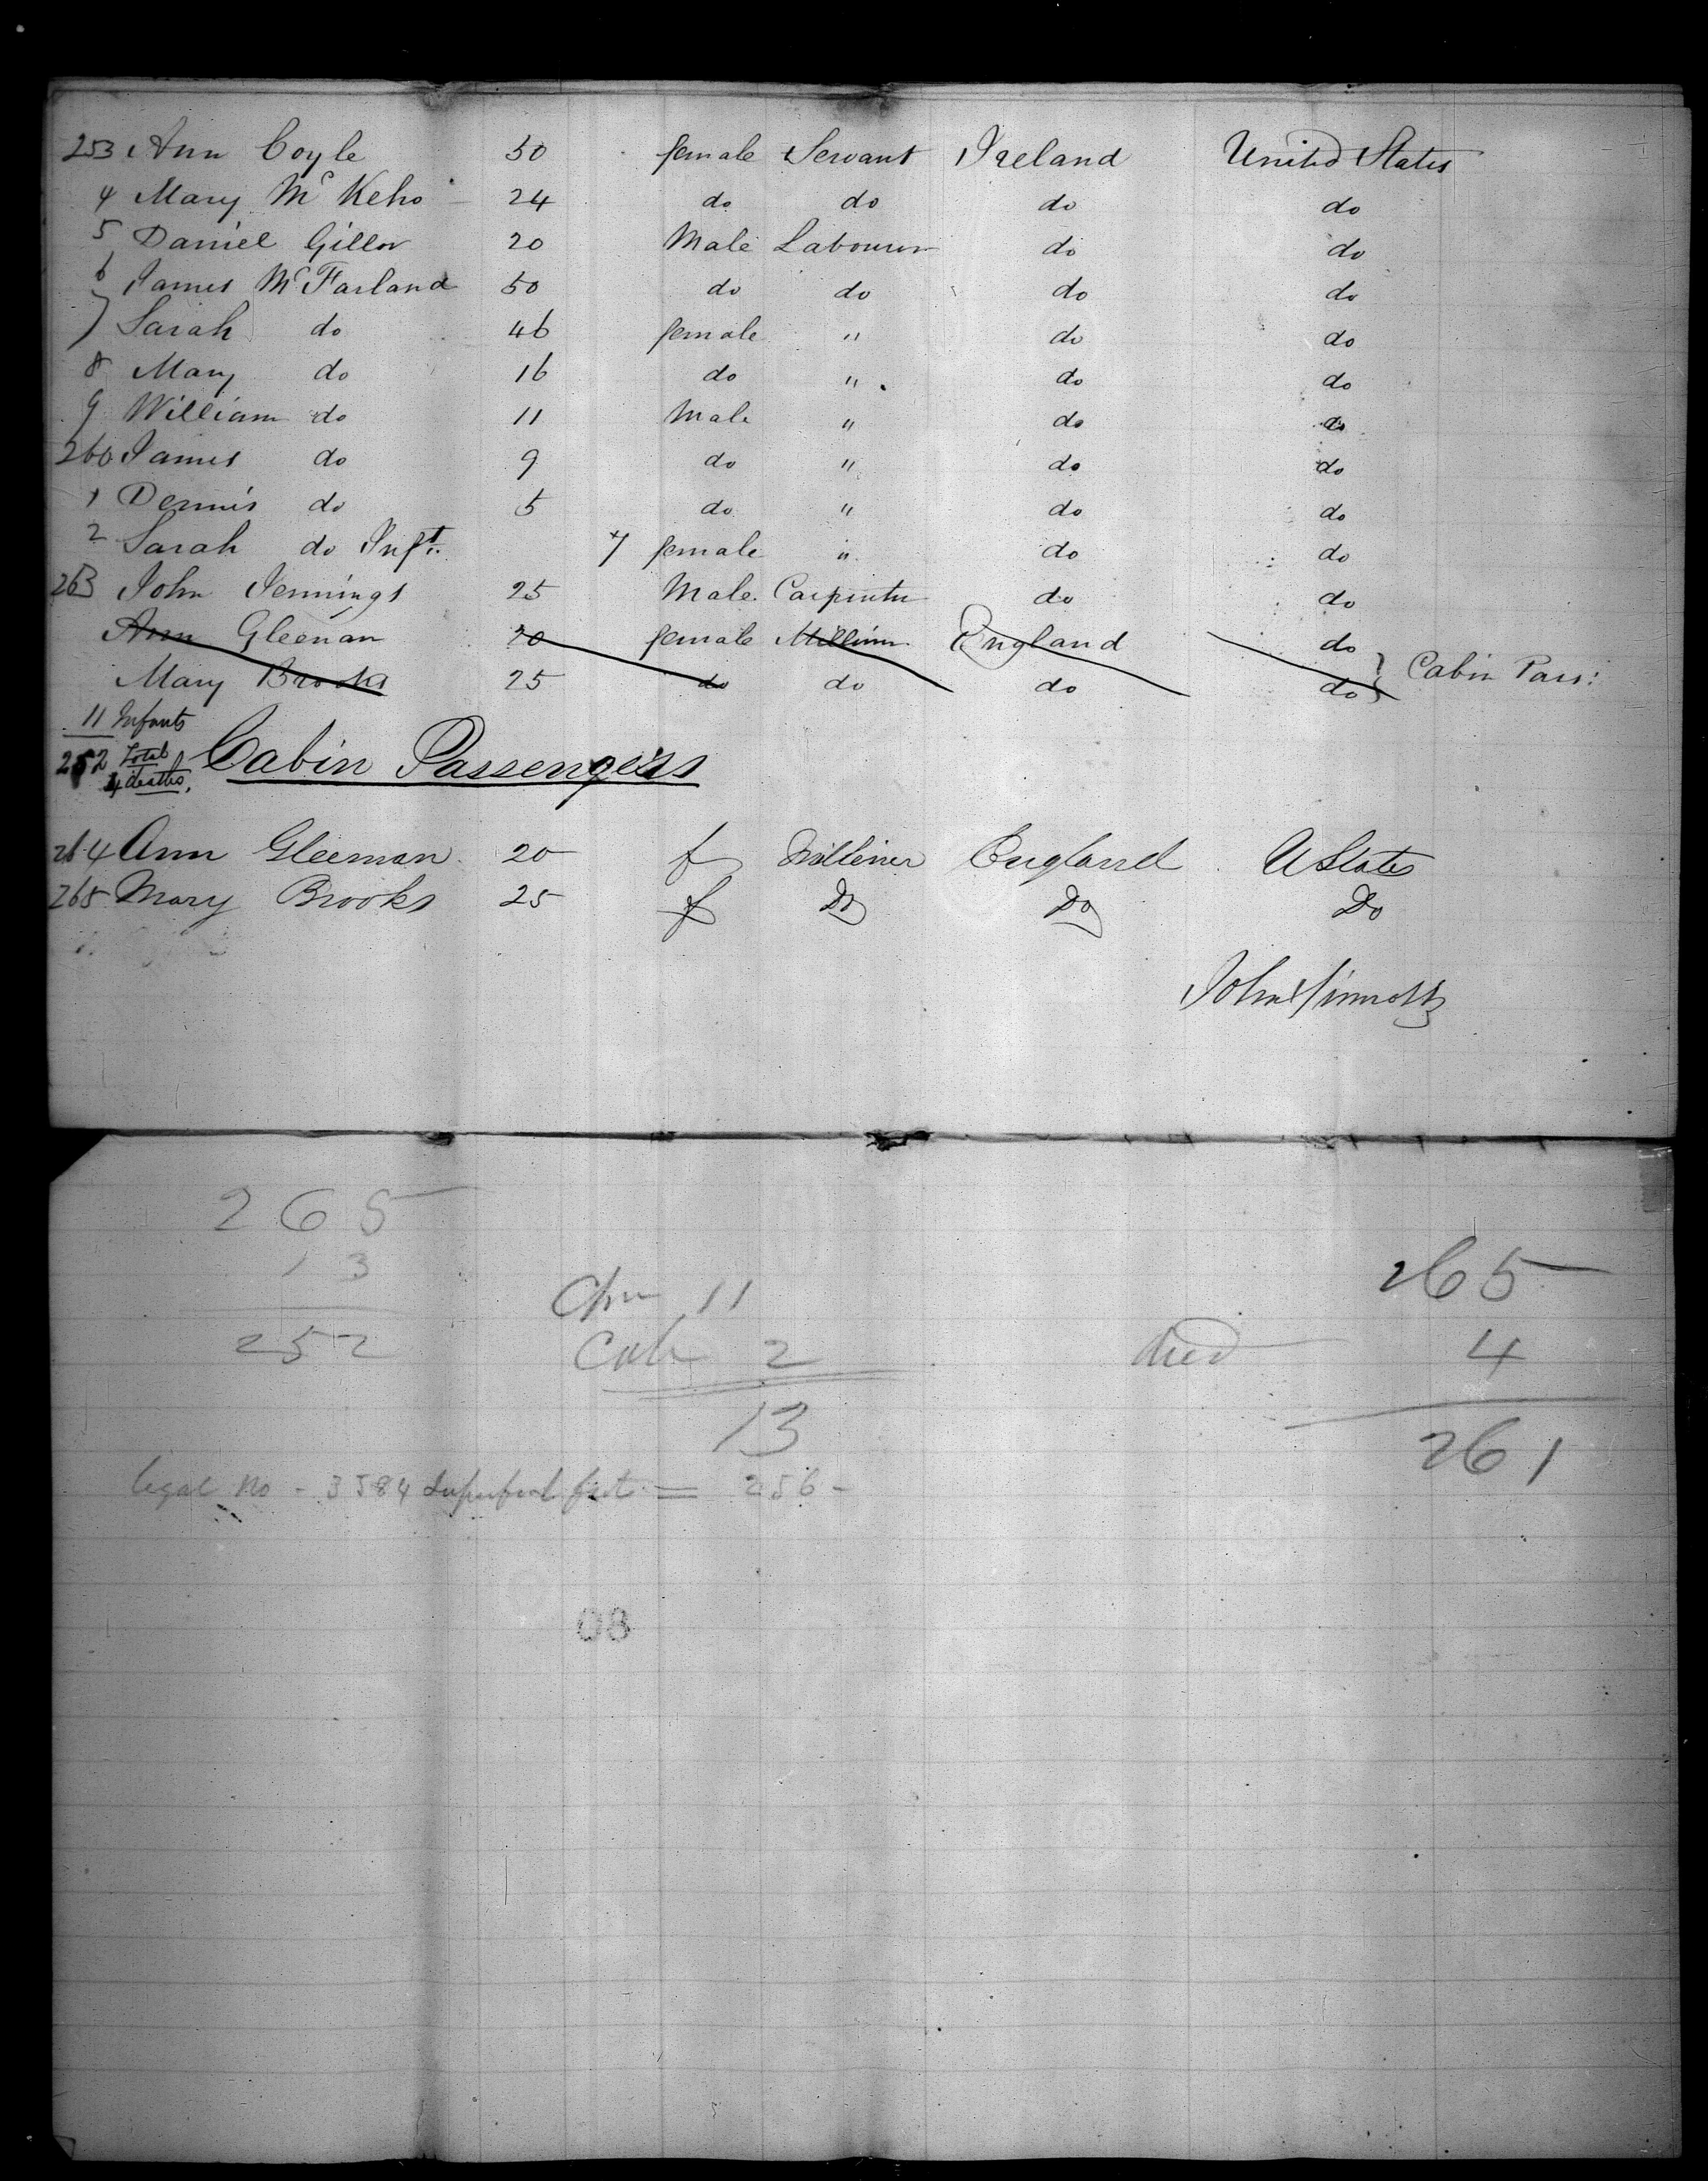 253 Ann Coyle 50 female Servant Ireland United States
4 Mary McKeho 24 do do do do
5 Daniel Giller 20 Male Labourer do do
6 James McFarland 50 do do do do
7 Sarah do 46 female " do do
8 Mary do 16 do " do do
9 William do 11 Male " do do
260 James do 9 do " do do
1 Dennis do 5 do " do do
2 Sarah do Inft. 7 female " do do
263 John Jennings 25 Male Carpenter do do
Ann Gleenan 20 female Milliner England do
Mary Brooks 25 do do do do } Cabin Pass:
11 Infants
252 Total
4 deaths,
Cabin Passengers
264 Ann Gleeman 20 f Milliner England U States
265 Mary Brooks 25 f Do Do Do
John Sinnott
265
13
252
Chn 11
Cab 2
13
265
died 4
261
legal No - 3584 Superficial feet = 256 -
08